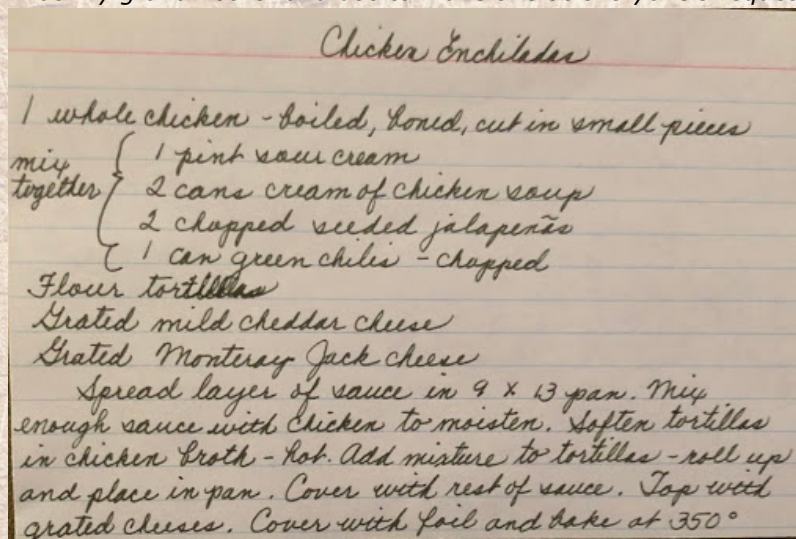 Chicken Enchiladas
1 whole chicken - boiled, boned, cut in small pieces
mix together
1 pint sour cream
2 cans cream of chicken soup
2 chopped seeded jalapeñas
1 can green chilis - chopped
Flour tortillas
Grated mild cheddar cheese
Grated Monteray Jack cheese
Spread layer of sauce in 9 x 13 pan. Mix
enough sauce with chicken to moisten. Soften tortillas
in chicken broth - hot. Add mixture to tortillas - roll up
and place in pan. Cover with rest of sauce. Top with
grated cheeses. Cover with foil and bake at 350°